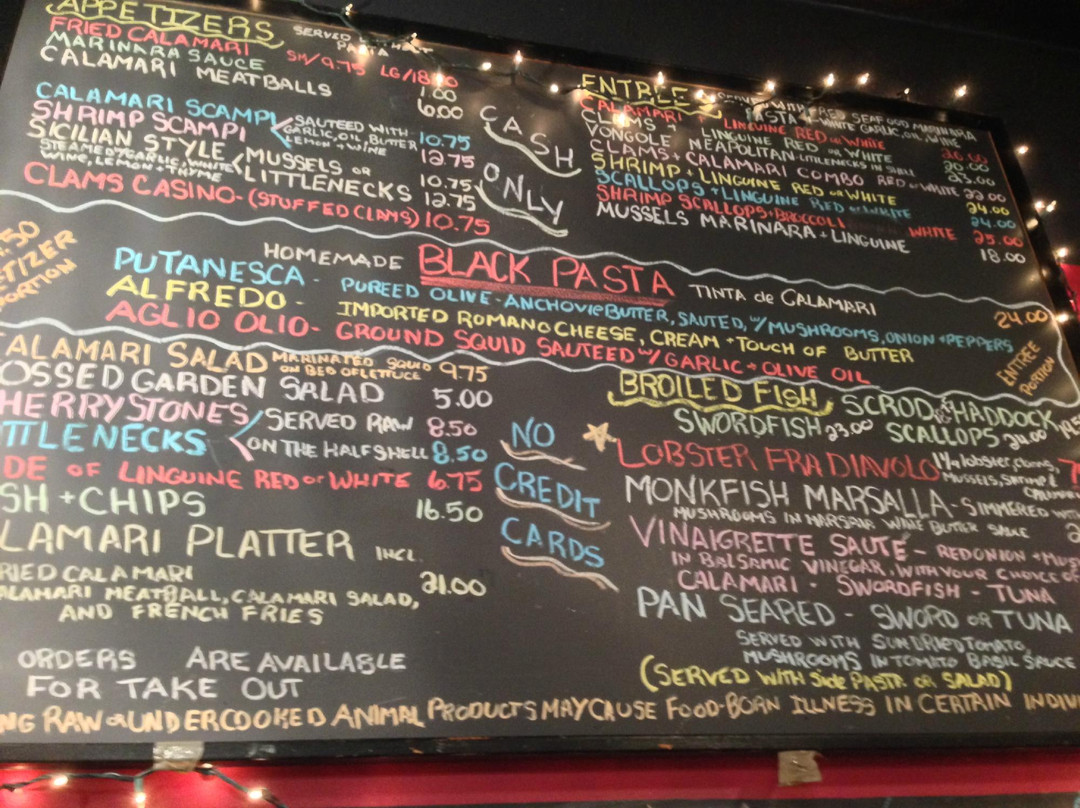 APPETIZERS
FRIED CALAMARI SM/9.75 LG/18.50
MARINARA SAUCE 1.00
CALAMARI MEATBALLS 6.00
CALAMARI SCAMPI 10.75
SHRIMP SCAMPI 12.75
SAUTEED WITH
GARLIC, OIL, BUTTER
LEMON + WINE
SICILIAN STYLE
STEAMED W/GARLIC, WHITE
WINE, LEMON + THYME
MUSSELS OR 10.75
LITTLENECKS 12.75
CLAMS CASINO-(STUFFED CLAMS) 10.75
CASH
ONLY
ENTREE
CALAMARI LINGUINE RED OR WHITE
CLAMS + LINGUINE RED OR WHITE
VONGOLE NEAPOLITAN-LITTLENECKS IN SHELL
CLAMS + CALAMARI COMBO RED OR WHITE 22.00
SHRIMP + LINGUINE RED OR WHITE 24.00
SCALLOPS + LINGUINE RED OR WHITE 24.00
SHRIMP SCALLOPS + BROCCOLI WHITE 25.00
MUSSELS MARINARA + LINGUINE 18.00
HOMEMADE BLACK PASTA TINTA de CALAMARI
PUTANESCA - PUREED OLIVE-ANCHOVIE BUTTER, SAUTED, W/MUSHROOMS, ONION + PEPPERS
ALFREDO - IMPORTED ROMANO CHEESE, CREAM + TOUCH OF BUTTER
AGLIO OLIO - GROUND SQUID SAUTEED W/ GARLIC + OLIVE OIL
24.00
ENTREE
PORTION
ALAMARI SALAD MARINATED SQUID
ON BED OF LETTUCE 9.75
OSSED GARDEN SALAD 5.00
HERRYSTONES 8.50
TTLENECKS 8.50
SERVED RAW
ON THE HALF SHELL
DE OF LINGUINE RED OR WHITE 6.75
SH + CHIPS 16.50
LAMARI PLATTER INCL.
RIED CALAMARI 21.00
ALAMARI MEATBALL, CALAMARI SALAD,
AND FRENCH FRIES
ORDERS ARE AVAILABLE
FOR TAKE OUT
NO
CREDIT
CARDS
BROILED FISH - SCROD HADDOCK
SWORDFISH 23.00 SCALLOPS
LOBSTER FRA DIAVOLO
MONKFISH MARSALLA - SIMMERED WITH
MUSHROOMS IN MARSALA WINE BUTTER SAUCE
VINAIGRETTE SAUTE - RED ONION +
IN BALSAMIC VINEGAR, WITH YOUR CHOICE OF
CALAMARI - SWORDFISH - TUNA
PAN SEARED - SWORD OR TUNA
SERVED WITH SUNDRIED TOMATO,
MUSHROOMS IN TOMATO BASIL SAUCE
(SERVED WITH SIDE PASTA OR SALAD)
NG RAW OR UNDERCOOKED ANIMAL PRODUCTS MAY CAUSE FOOD-BORN ILLNESS IN CERTAIN INDIV